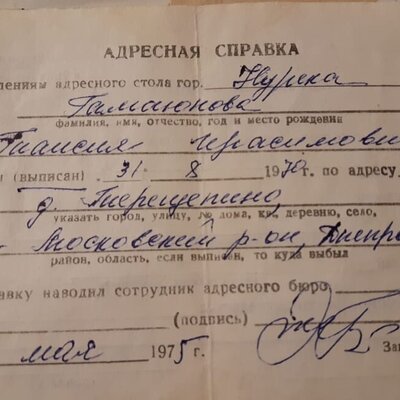 АДРЕСНАЯ СПРАВКА
лениям адресного стола гор. Нурека
Гамаюнова
фамилия, имя, отчество, год и место рождения
Таисия Герасимовн
(выписан) 31 8 1970 г. по адресу
д. Терещепино,
указать город, улицу, № дома, кв, деревню, село,
Московский р-он, Днепро
район, область, если выписан, то куда выбыл
авку наводил сотрудник адресного бюро
(подпись)
мая 1975 г. За